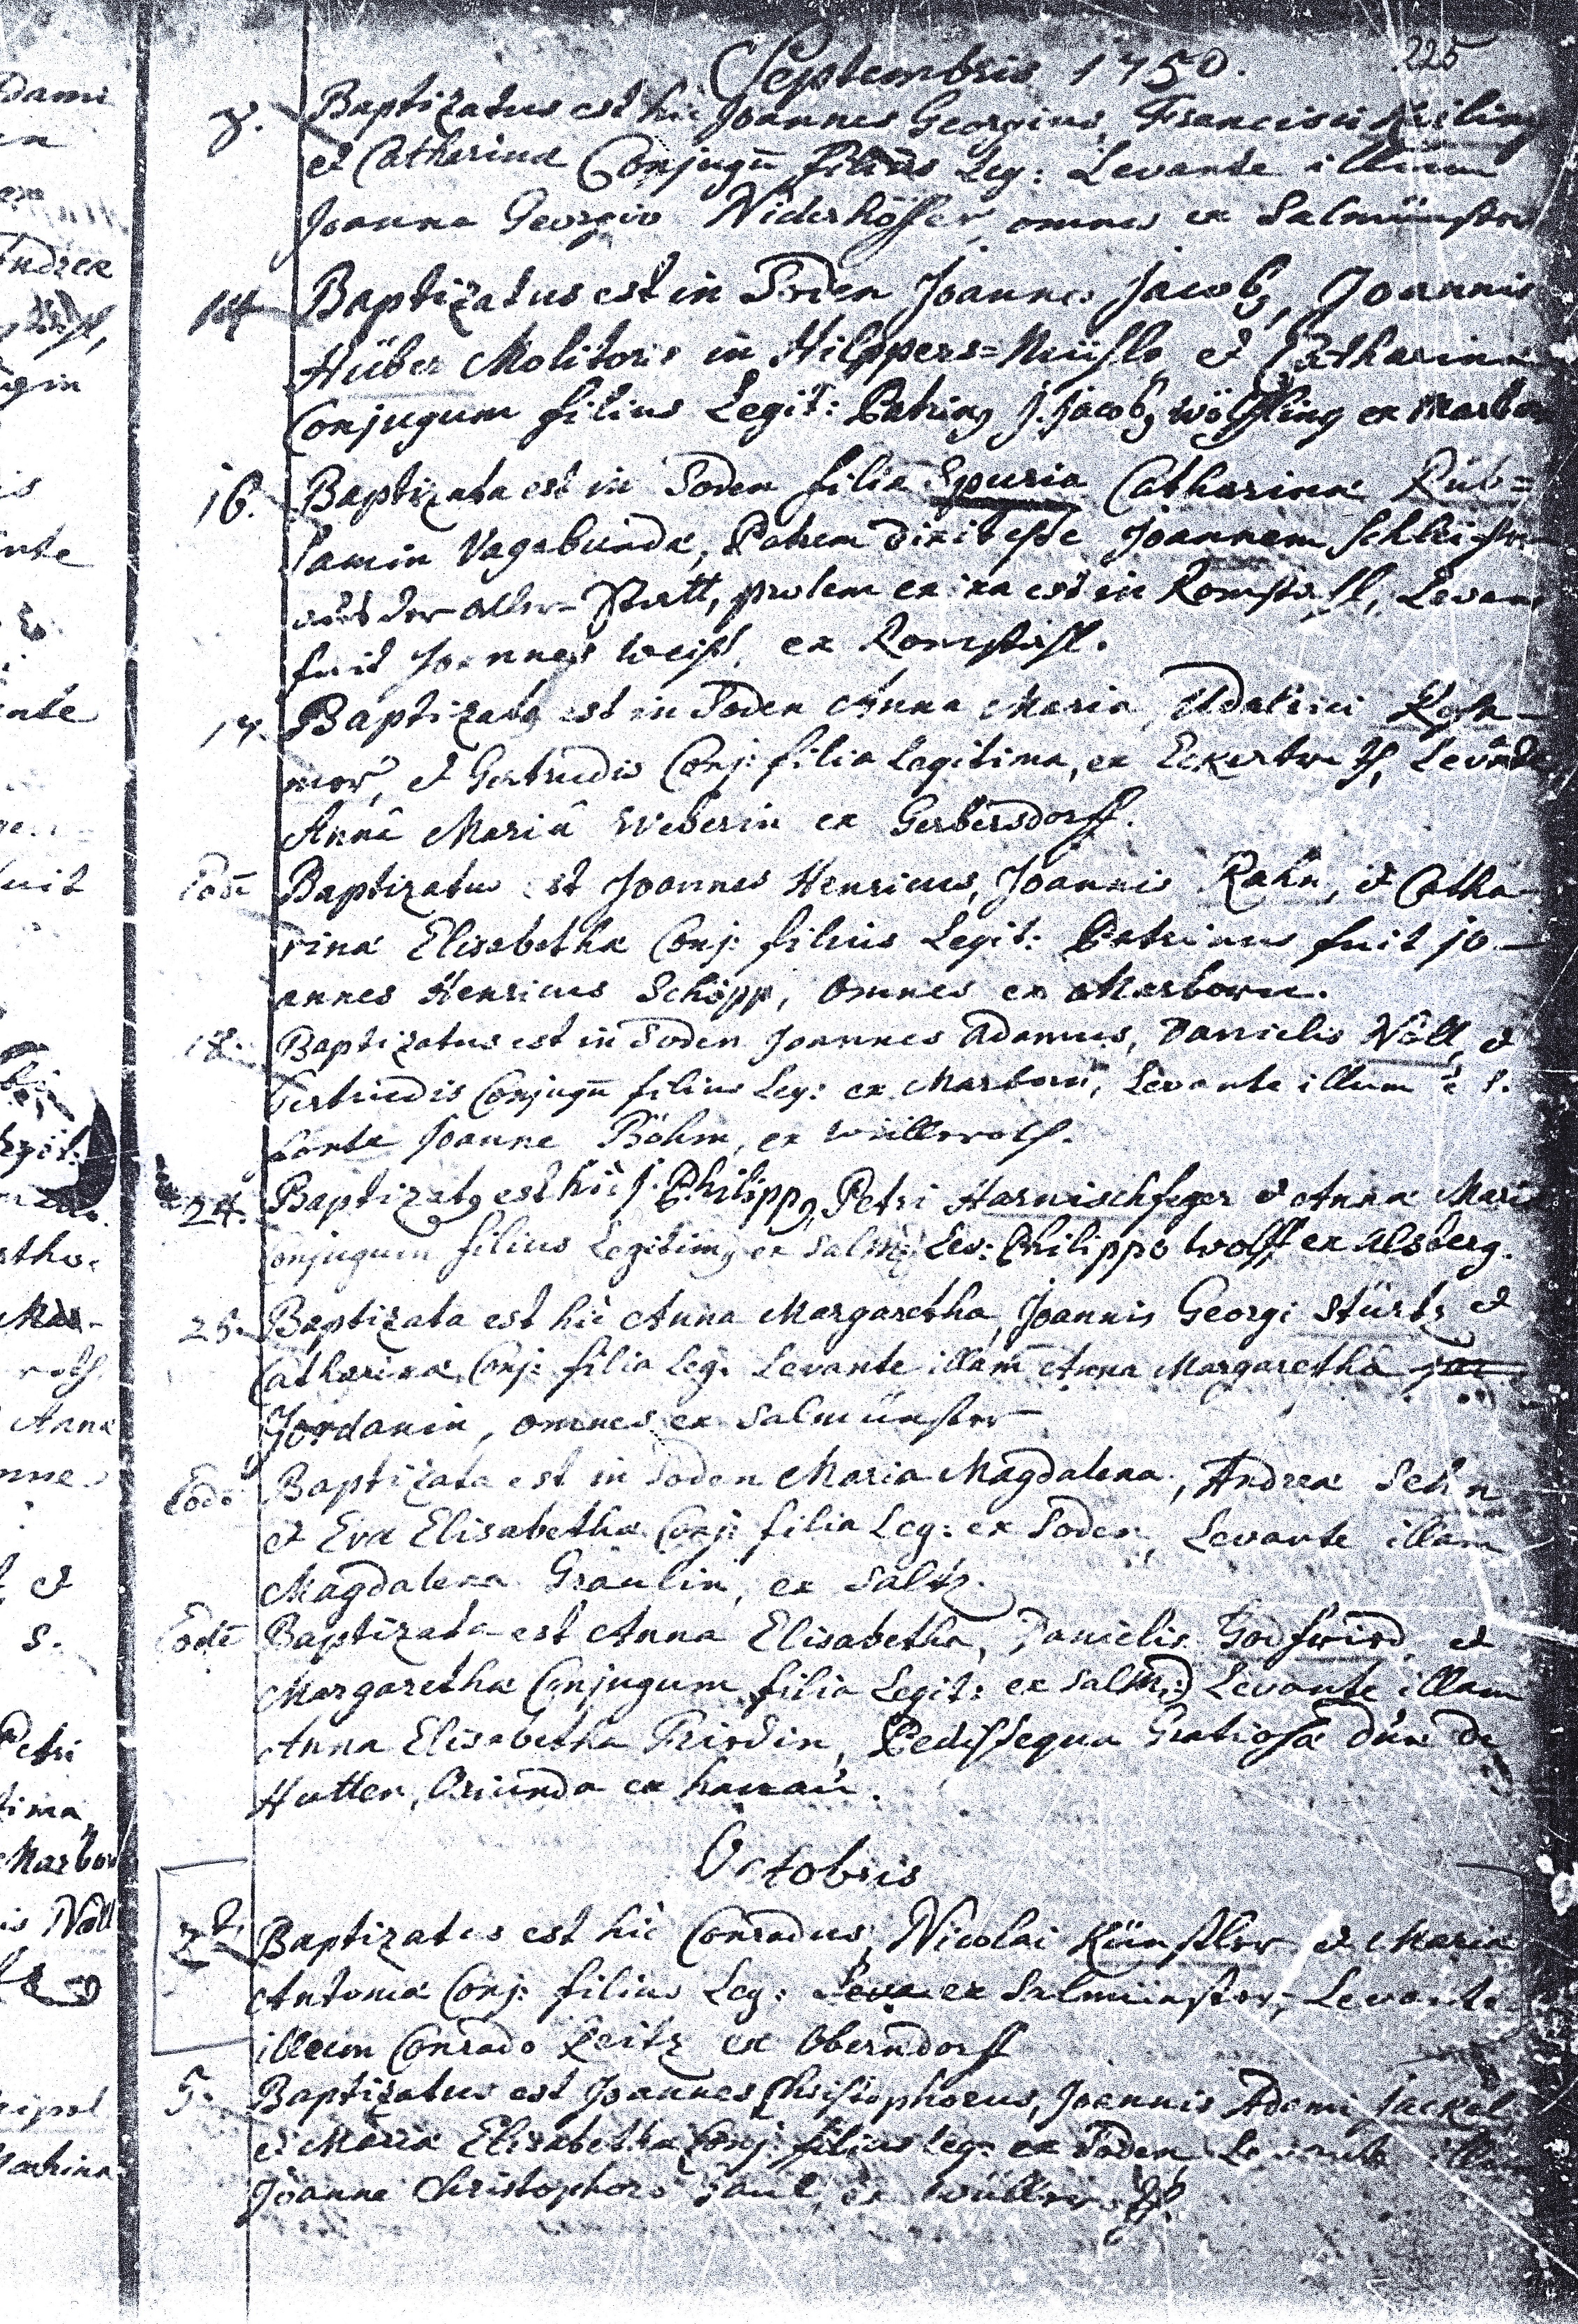 Septembris 1750. 225
8. Baptizatus est hic Joannes Georgius, Francisci Keiling
et Catharinæ Conjugū filius Leg: Levante illum
Joanne Georgio Niderhöffer, omnes ex Salmünster
14 Baptizatus est in Soden Joannes Jacobg, Joannis
Hüber Molitoris in Hilppers=Mühle et Catharinæ
Conjugum filius Legit: Patring J. Jacobg Wölffling ex Marborn
16. Baptizata est in Soden filia Spuria Catharinæ Rub=
samin Vagabundæ, Patrem dixit esse Joannem Schleicher
aus der Statt, prolem enixa est in Romsthall, Levans
fuit Joannes Weiß, ex Romsthall.
17. Baptizata est in Soden Anna Maria, Udalrici
et Gertrudis Conj: filia Legitima, ex Eckertroth, Levante
Annâ Mariâ Weberin ex Gerbersdorff.
Eodē Baptizatus est Joannes Henricus, Joannis Rahn, et Catha-
rinæ Elisabethæ Conj: filius Legit: Patrinus fuit Jo-
annes Henricus Schöpp, omnes ex Marborn.
18. Baptizatus est in Soden Joannes Adamus, Danielis Nöll, et
Gertrudis Conjugū filius Leg: ex Marborn, Levante illum è S.
fonte Joanne Böhm, ex Wüllroth.
24. Baptizatg est hic J. Philippg, Petri Harnischfeger et Annæ Mariæ
Conjugum filius Legitimg ex Salm: Lev: Philippo Wolff ex Alsberg.
25. Baptizata est hic Anna Margaretha, Joannis Georgi Stürtz et
Catharinæ Conj: filia Leg: Levante illam Anna Margarethâ
Jordanin, omnes ex Salmünster
Eodē Baptizata est in Soden Maria Magdalena, Andreæ Sehn
et Evæ Elisabethæ Conj: filia Leg: ex Soden, Levante illam
Magdalena Graulin, ex Saltz.
Eodē Baptizata est Anna Elisabetha, Danielis Godfrird et
Margarethæ Conjugum filia Legit: ex Salm: Levante illam
Anna Elisabetha Frirdin, Pedissequa Gratiosæ Dūæ de
Hutten, Oriunda ex hanau.
Octobris
2. Baptizatus est hic Conradus, Nicolai Künstler et Mariæ
Antoniæ Conj: filius Leg: Leva ex Salmünster, Levante
illum Conrado Zeitz ex Oberndorff
5. Baptizatus est Joannes Christophorus, Joannis Adami Jackel
et Mariæ Elisabethæ Conj: filius Leg: ex Soden Levante illum
Joanne Christophoro Paul, ex Wüllroth.